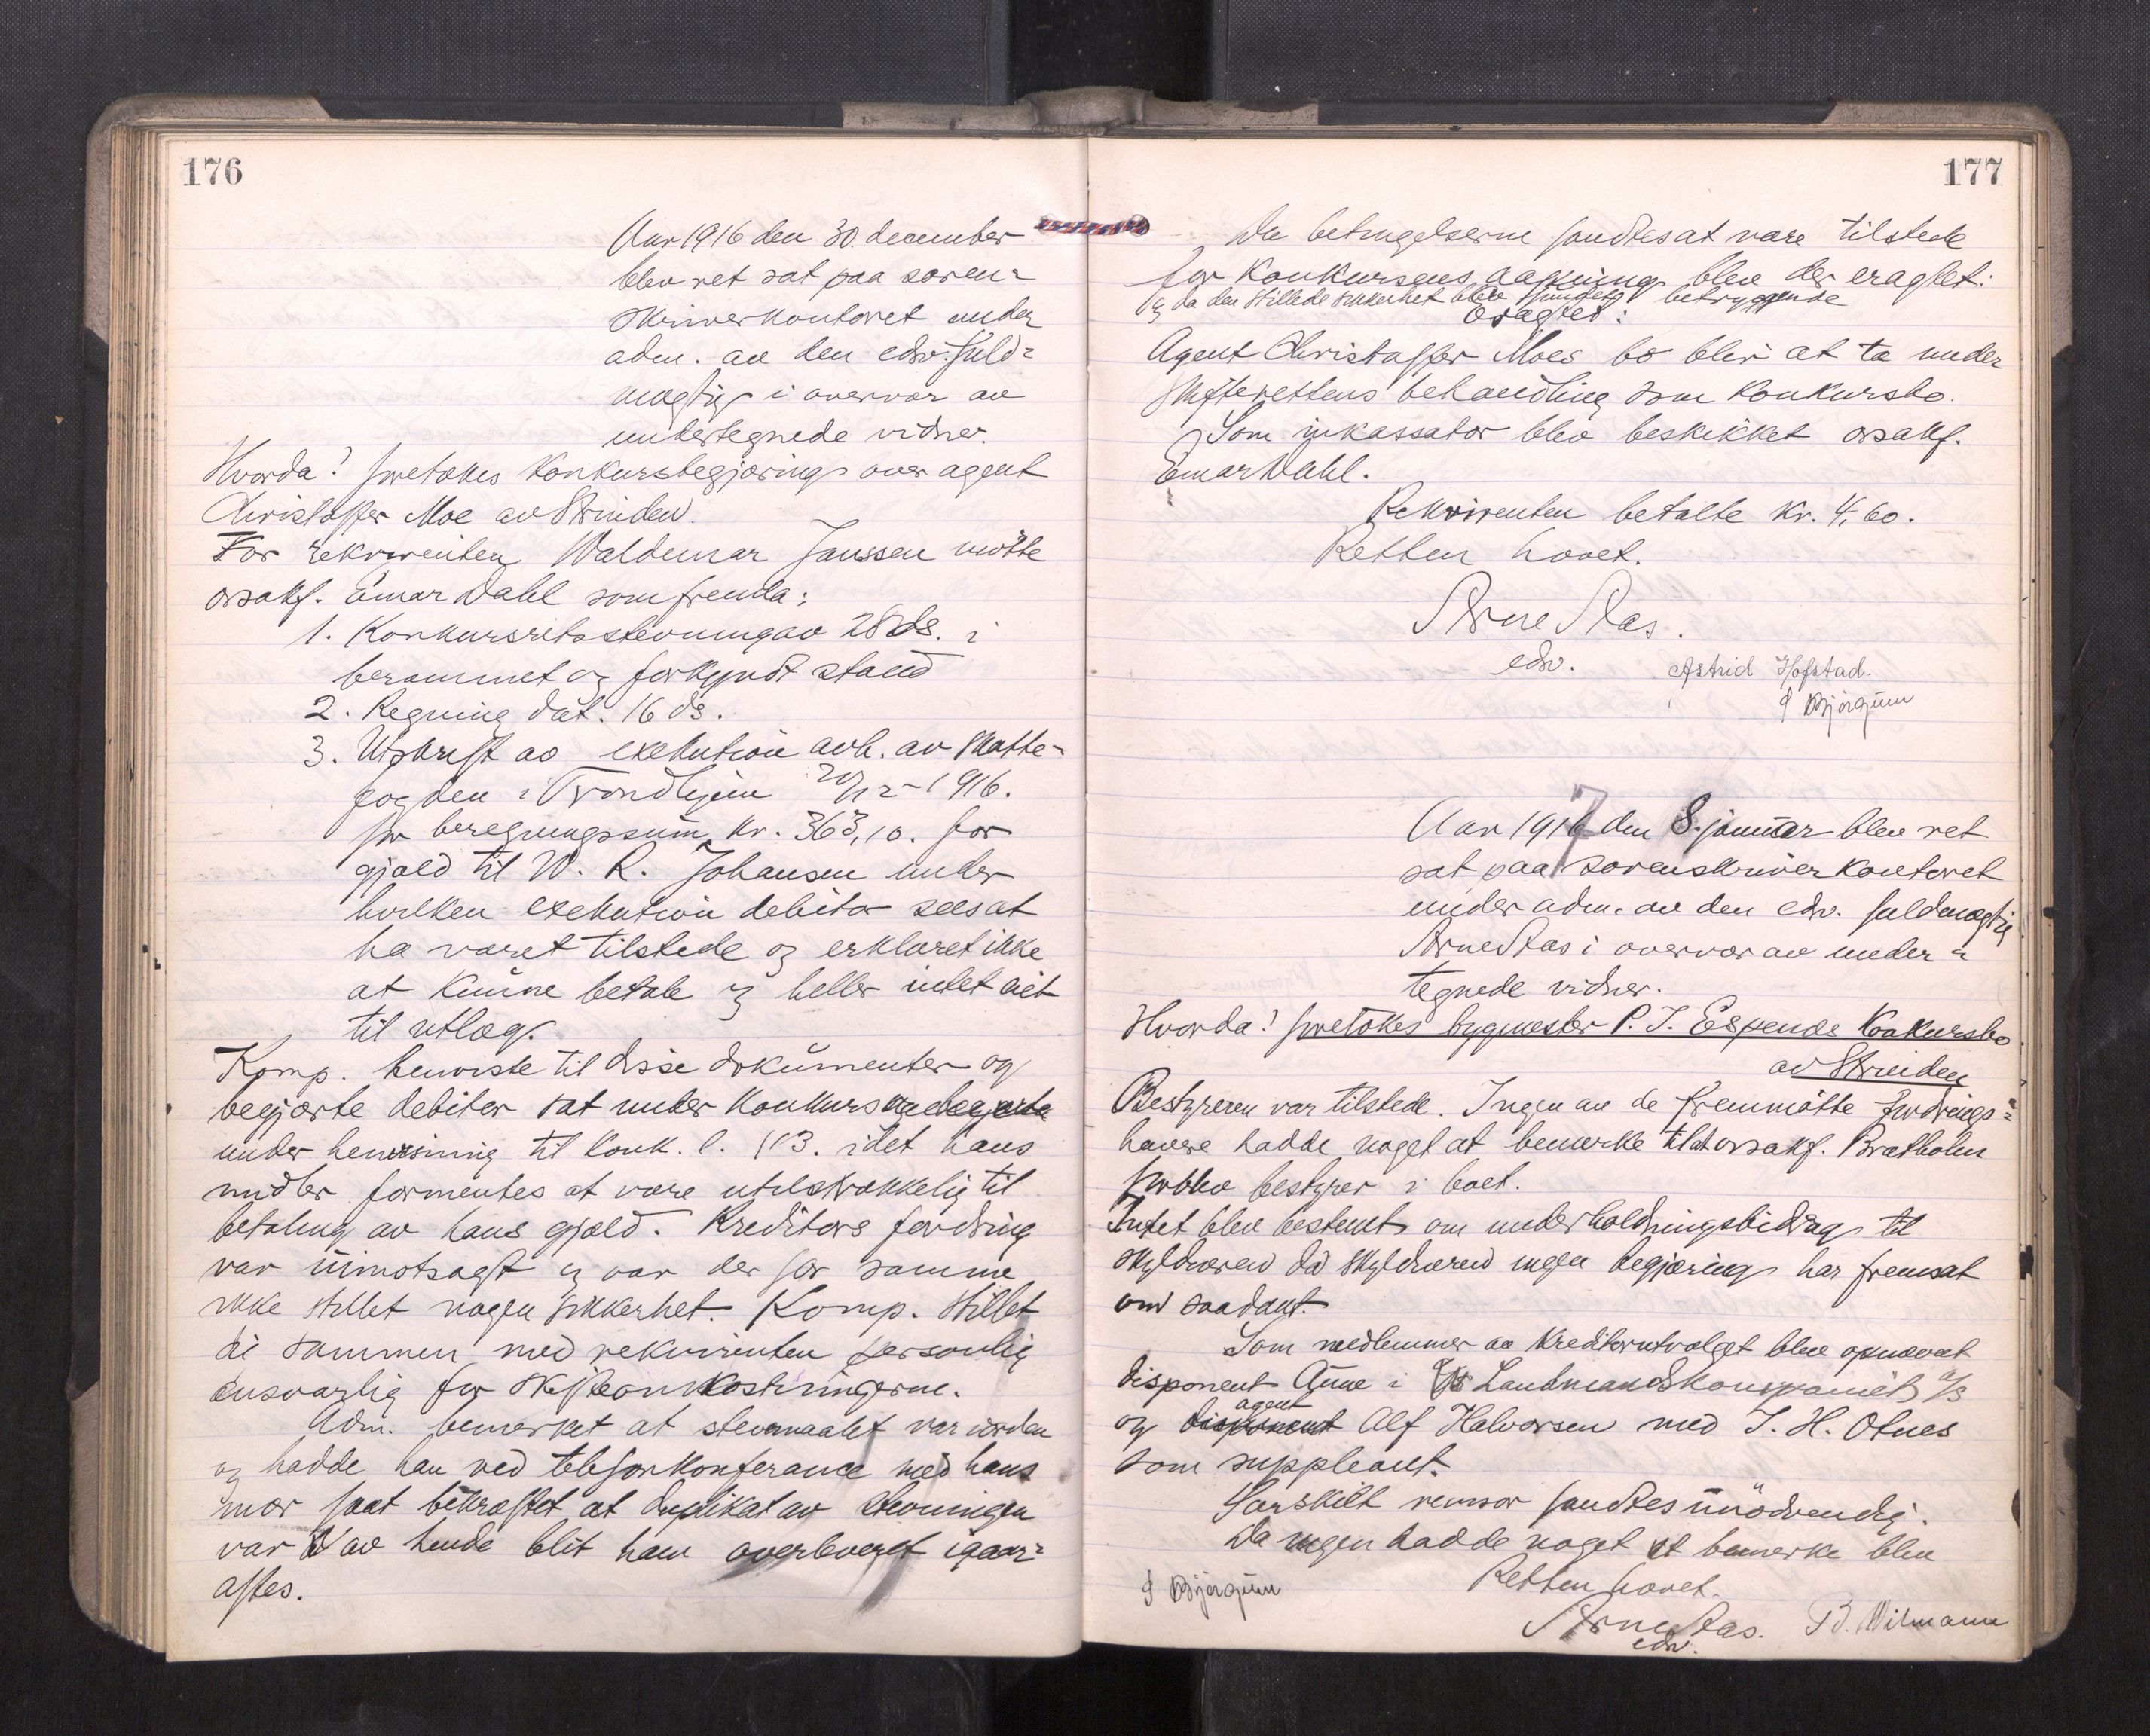 176
Aar 1916 den 30 december
blev ret sat paa soren-
skriverkontoret under
adm. av den edsv. fuld-
mægtig i overvær av
undertegnede vidner.
Hvorda! foretokes konkursbegjæring over agent
Christoffer Moe av Strinden.
For rekvirenten Waldemar Janssen møtte
orsakf. Einar Dahl som fremla:
1. Konkursretsstevning av 28 ds. i
berammet og forkyndt stand
2. Regning dat. 16 ds.
3. Utskrift av exekution avh. av skatte-
fogden i Trondhjem 20/12-1916.
for beregningssum kr. 363,10. for
gjæld til W. R. Johansen under
hvilken exekution debitor sees at
ha været tilstede og erklæret ikke
at kunne betale og heller intet eiet
til utlæg.
Komp. henviste til disse dokumenter og
begjærte debitor sat under konkurs og begjærte
under henvisning til konk. l. § 3. idet hans
midler formentes at være utilstrækkelig til
betaling av hans gjæld. Kreditors fordring
var uimotsagt og var der for samme
ikke stillet nogen sikkerhet. Komp. stillet
sig sammen med rekvirenten personlig
ansvarlig for skifteomkostningerne.
Adm. bemerket at stevnemaalet var i orden
og hadde han ved telefonkonferance med hans
mor faat bekræftet at duplikat av stevningen
var av hende blit ham overleveret igaar-
aftes.
177
Da betingelserne fandtes at være tilstede
for konkursens aapning blev der eragtet:
og da den stillede sikkerhet blev fundet betryggende
Eragtet:
Agent Christoffer Moes bo blir at ta under
skifterettens behandling som konkursbo.
Som inkassator blev beskikket orsakf.
Einar Dahl.
Rekvirenten betalte kr. 4,60.
Retten hævet.
Arne Aas.
edsv.
Astrid Hofstad.
J Bjørgum
Aar 1917 den 8. januar blev ret
sat paa sorenskriverkontoret
under adm. av den edsv. fuldmægtig
Arne Aas i overvær av under-
tegnede vidner.
Hvorda! foretokes bygmester P. J. Espends konkursbo
av Strinden
Bestyreren var tilstede. Ingen av de fremmøtte fordrings-
havere hadde noget at bemerke til at orsakf. Bratholm
forblev bestyrer i boet.
Intet blev bestemt om underholdningsbidrag til
skyldneren da skyldneren ingen begjæring har fremsat
om saadant.
Som medlemmer av kreditorutvalget blev opnævnt
disponent Aune i Landmandskompaniet a/s
agent
og disponent Alf Halvorsen med J. H. Olnes
som suppleant.
Særskilt revisor fandtes unødvendig.
Da ingen hadde noget at bemerke blev
Retten hævet.
J Bjørgum
Arne Aas. B. Wilmann
edsv.